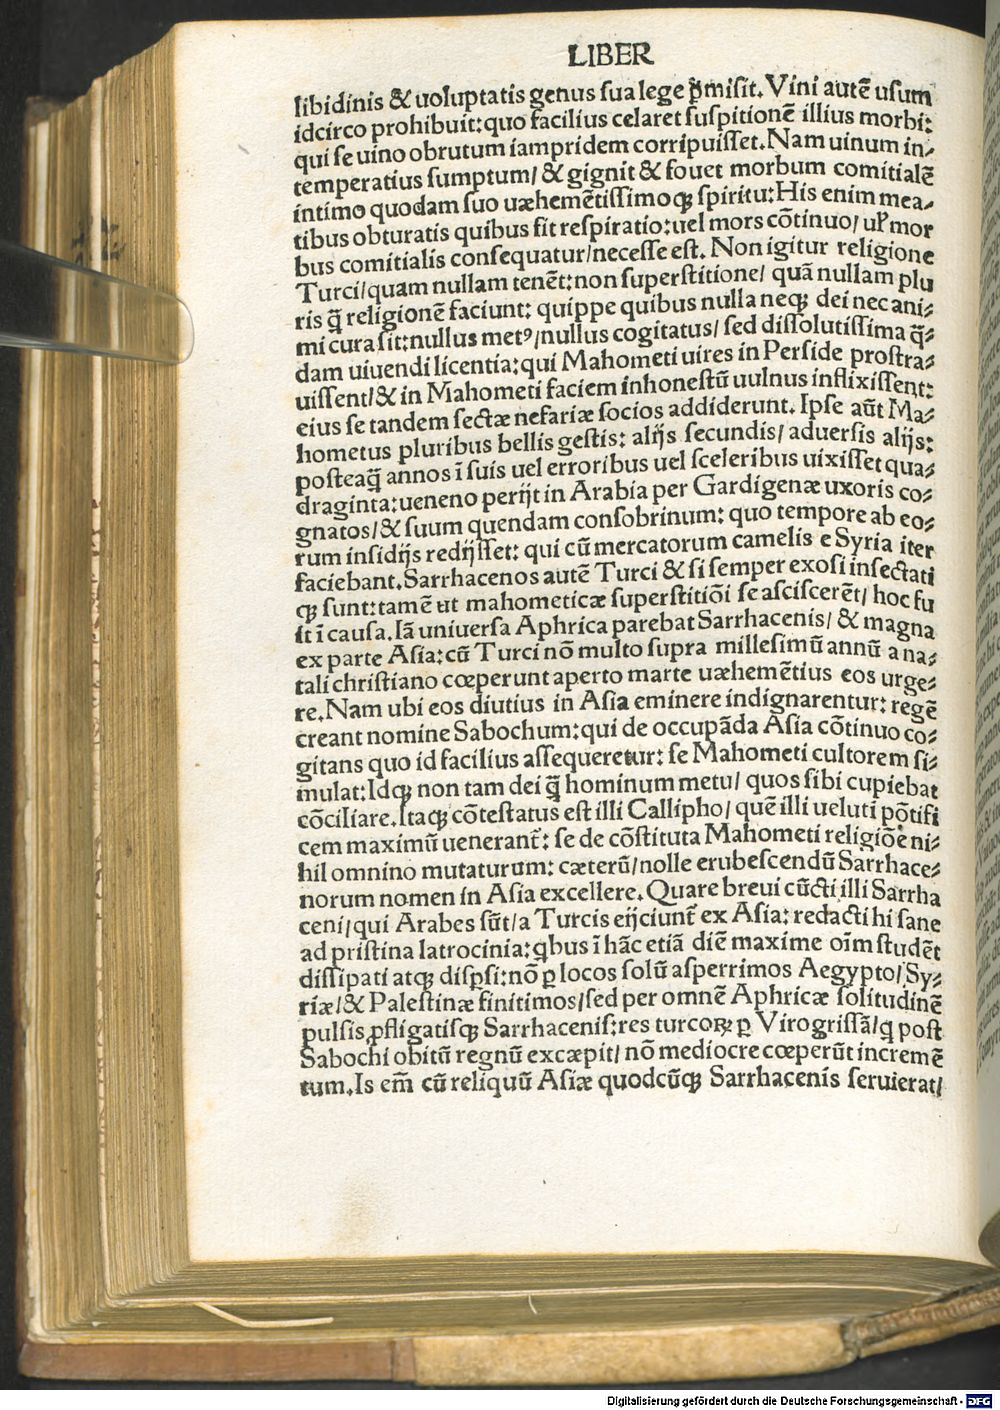 LIBER
libidinis & uoluptatis genus sua lege ꝑmisit. Vini autẽ usum
idcirco prohibuit: quo facilius celaret suspitionẽ illius morbi:
qui se uino obrutum iampridem corripuisset. Nam uinum in-
temperatius sumptum/ & gignit & fouet morbum comitialẽ
intimo quodam suo uæhemẽtissimoqꝫ spiritu: His enim mea-
tibus obturatis quibus fit respiratio: uel mors cõtinuo/ ul̓ mor
bus comitialis consequatur/ necesse est. Non igitur religione
Turci/ quam nullam tenẽt: non superstitione/ quã nullam plu
ris q̃ religionẽ faciunt: quippe quibus nulla neqꝫ dei nec ani-
mi cura sit: nullus metꝰ/ nullus cogitatus/ sed dissolutissima q̃-
dam uiuendi licentia: qui Mahometi uires in Perside prostra-
uissent/ & in Mahometi faciem inhonestũ uulnus inflixissent:
eius se tandem sectæ nefariæ socios addiderunt. Ipse aũt Ma-
hometus pluribus bellis gestis: alijs secundis/ aduersis alijs:
posteaq̃ annos ĩ suis uel erroribus uel sceleribus uixisset qua-
draginta: ueneno perijt in Arabia per Gardigenæ uxoris co-
gnatos/ & suum quendam consobrinum: quo tempore ab eo-
rum insidijs redijsset: qui cũ mercatorum camelis e Syria iter
faciebant. Sarrhacenos autẽ Turci & si semper exosi insectati
qꝫ sunt: tamẽ ut mahometicæ superstitiõi se asciscerẽt/ hoc fu
it ĩ causa. Iã uniuersa Aphrica parebat Sarrhacenis/ & magna
ex parte Asia: cũ Turci nõ multo supra millesimũ annũ a na-
tali christiano cœperunt aperto marte uæhemẽtius eos urge-
re. Nam ubi eos diutius in Asia eminere indignarentur: regẽ
creant nomine Sabochum: qui de occupãda Asia cõtinuo co-
gitans quo id facilius assequeretur: se Mahometi cultorem si-
mulat: Idqꝫ non tam dei q̃ hominum metu/ quos sibi cupiebat
cõciliare. Itaqꝫ cõtestatus est illi Callipho/ quẽ illi ueluti põtifi
cem maximũ uenerant̃: se de cõstituta Mahometi religiõe ni-
hil omnino mutaturum: cæterũ/ nolle erubescendũ Sarrhace-
norum nomen in Asia excellere. Quare breui cũcti illi Sarrha
ceni/ qui Arabes sũt/ a Turcis eijciunt̃ ex Asia: redacti hi sane
ad pristina latrocinia: qbus ĩ hãc etiã diẽ maxime oĩm studẽt
dissipati atqꝫ disꝑsi: nõ ꝑ locos solũ asperrimos Aegypto/ Sy-
riæ/ & Palestinæ finitimos/ sed per omnẽ Aphricæ solitudinẽ
pulsis ꝓfligatisqꝫ Sarrhacenis: res turcoꝝ ꝑ Virogrissã/ q post
Sabochi obitũ regnũ excæpit/ nõ mediocre cœperũt incremẽ
tum. Is em̃ cũ reliquũ Asiæ quodcũqꝫ Sarrhacenis seruierat/
Digitalisierung gefördert durch die Deutsche Forschungsgemeinschaft - DFG